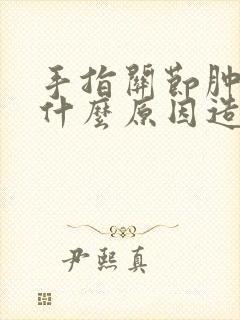 手指關節肿
什麼原因造
尹熙真